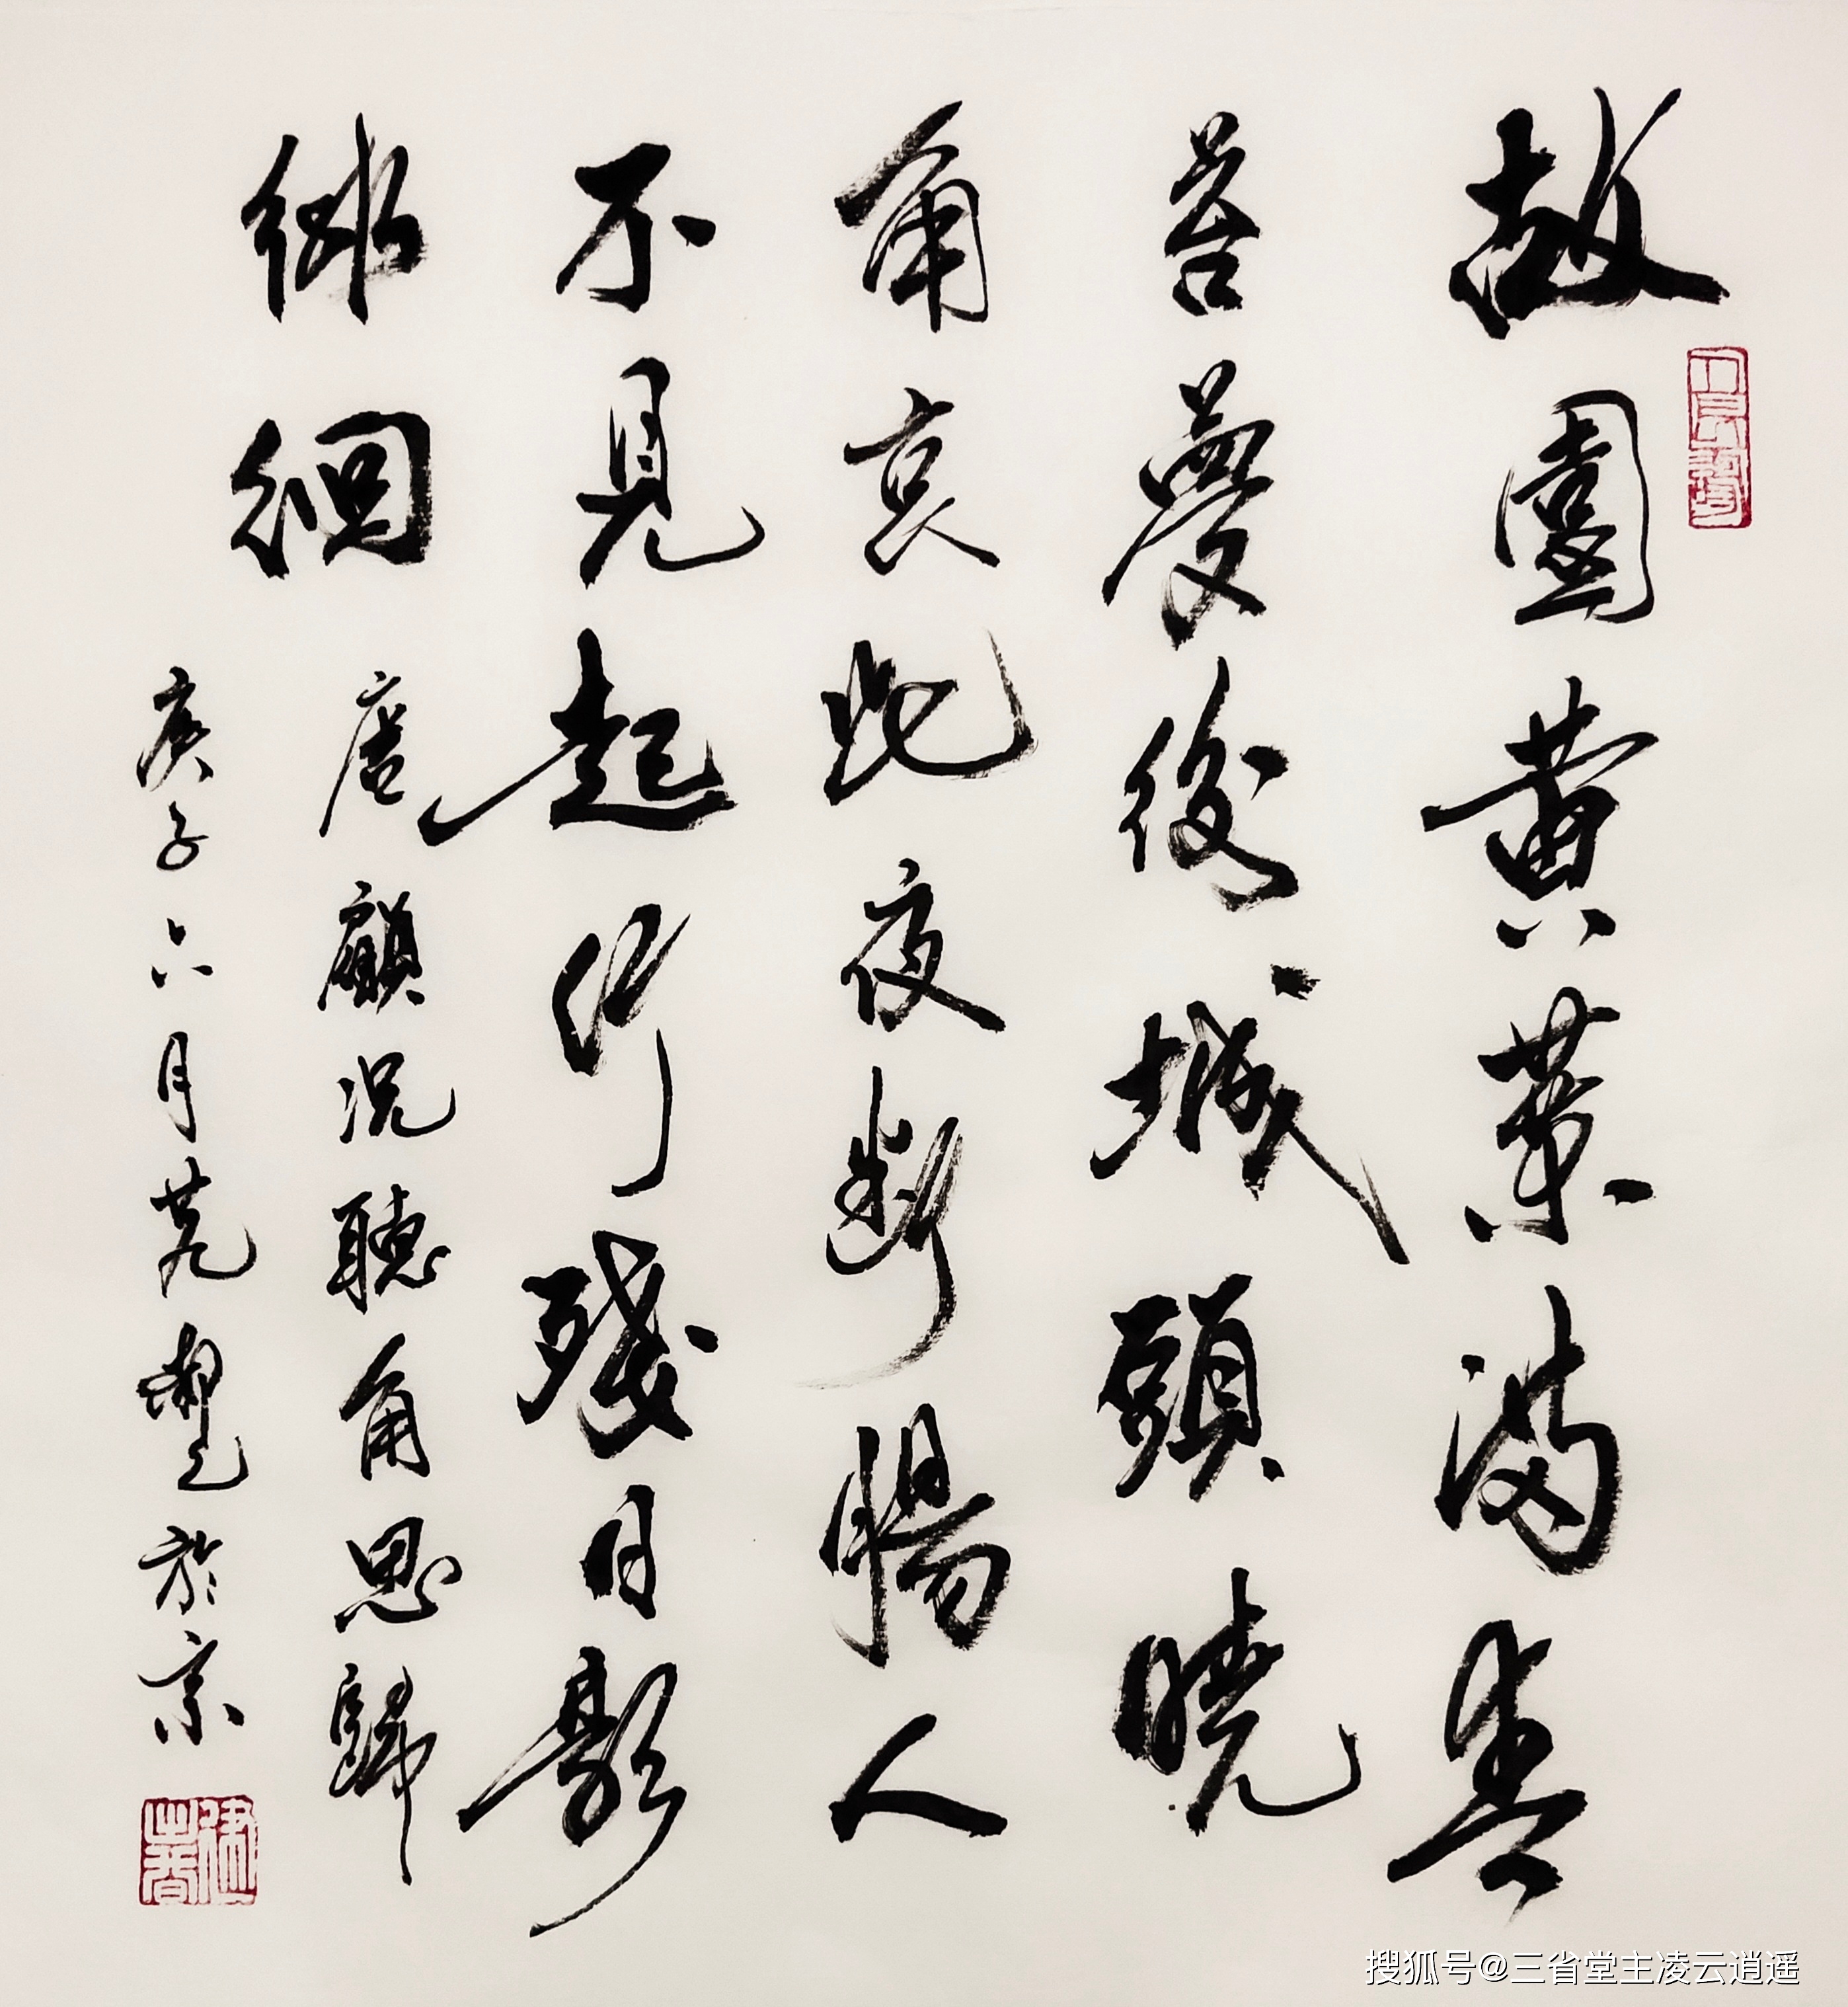 故園黄葉滿青
苔夢後城頭曉
角哀此夜斷腸人
不見起行殘月影
徘徊
唐顧況聽角思歸
庚子六月 於京
搜狐号@三省堂主凌云逍遥